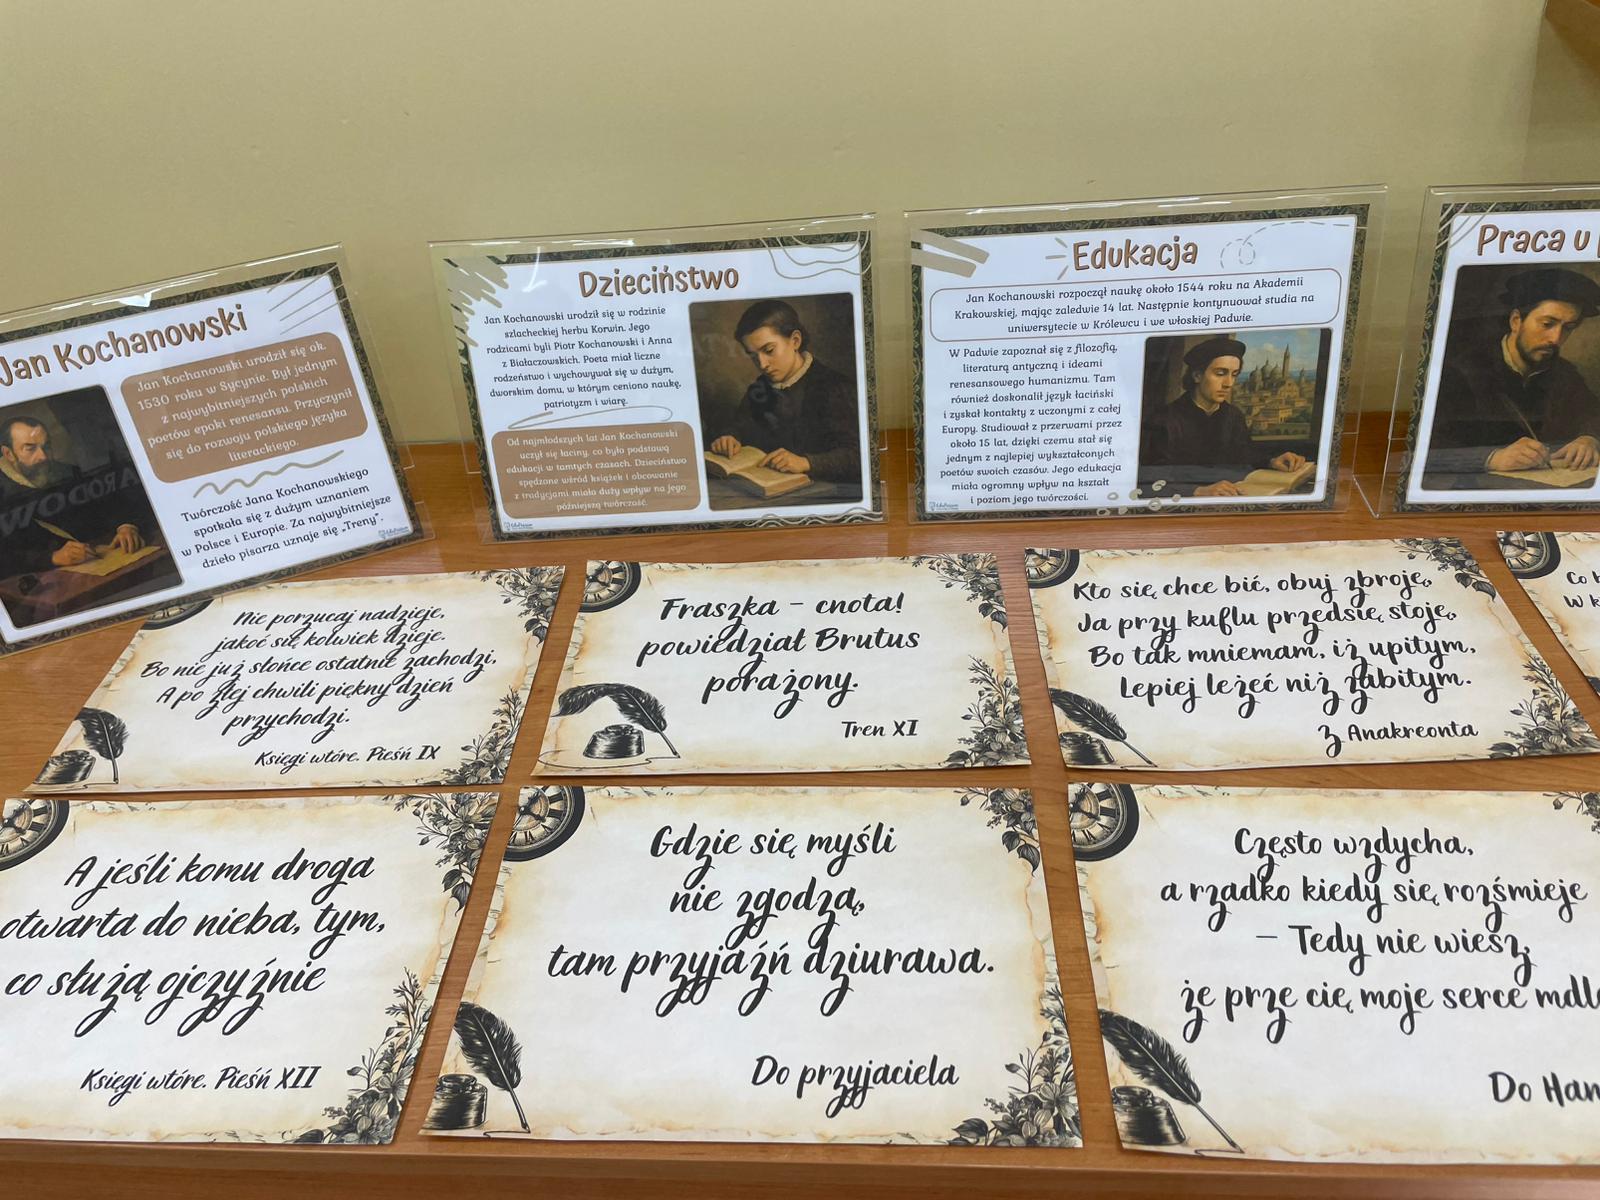 Jan Kochanowski
Jan Kochanowski urodził się ok.
1530 roku w Sycynie. Był jednym
z najwybitniejszych polskich
poetów epoki renesansu. Przyczynił
się do rozwoju polskiego języka
literackiego.
Twórczość Jana Kochanowskiego
spotkała się z dużym uznaniem
w Polsce i Europie. Za najwybitniejsze
dzieło pisarza uznaje się „Treny”.
Dzieciństwo
Jan Kochanowski urodził się w rodzinie
szlacheckiej herbu Korwin. Jego
rodzicami byli Piotr Kochanowski i Anna
z Białaczowskich. Poeta miał liczne
rodzeństwo i wychowywał się w dużym,
dworskim domu, w którym ceniono naukę,
patriotyzm i wiarę.
Od najmłodszych lat Jan Kochanowski
uczył się łaciny, co było podstawą
edukacji w tamtych czasach. Dzieciństwo
spędzone wśród książek i obcowanie
z tradycjami miało duży wpływ na jego
późniejszą twórczość.
Edukacja
Jan Kochanowski rozpoczął naukę około 1544 roku na Akademii
Krakowskiej, mając zaledwie 14 lat. Następnie kontynuował studia na
uniwersytecie w Królewcu i we włoskiej Padwie.
W Padwie zapoznał się z filozofią,
literaturą antyczną i ideami
renesansowego humanizmu. Tam
również doskonalił język łaciński
i zyskał kontakty z uczonymi z całej
Europy. Studiował z przerwami przez
około 15 lat, dzięki czemu stał się
jednym z najlepiej wykształconych
poetów swoich czasów. Jego edukacja
miała ogromny wpływ na kształt
i poziom jego twórczości.
Praca u
Nie porzucaj nadzieje,
jakoć się kolwiek dzieje.
Bo nie już słońce ostatnie zachodzi,
A po złej chwili piękny dzień
przychodzi.
Księgi wtóre. Pieśń IX
Fraszka - cnota!
powiedział Brutus
porażony.
Tren XI
Kto się chce bić, obuj zbroję,
Ja przy kuflu przedsię stoję,
Bo tak mniemam, iż upitym,
Lepiej leżeć niż zabitym.
Z Anakreonta
Co
W k
A jeśli komu droga
otwarta do nieba, tym,
co służą ojczyźnie
Księgi wtóre. Pieśń XII
Gdzie się myśli
nie zgodzą,
tam przyjaźń dziurawa.
Do przyjaciela
Często wzdycha,
a rzadko kiedy się rozśmieje
- Tedy nie wiesz,
że prze cię moje serce mdl
Do Han